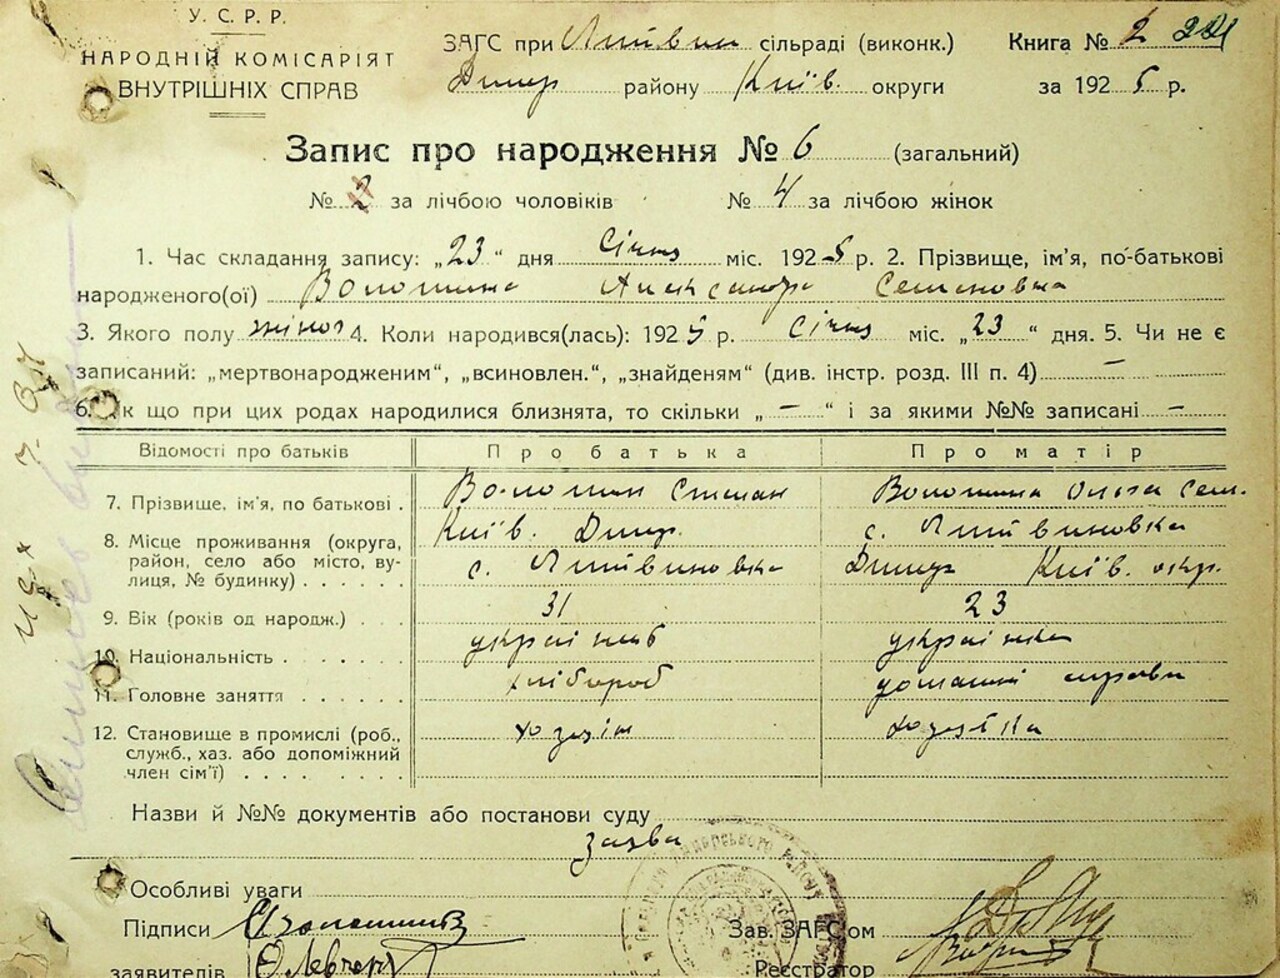 У. С. Р. Р.
НАРОДНІЙ КОМІСАРІЯТ
ВНУТРІШНІХ СПРАВ
ЗАГС при Литвин сільраді (виконк.) Книга № 2 221
Димер району Київ. округи за 1925 р.
Запис про народження № 6 (загальний)
№ 2 за лічбою чоловіків № 4 за лічбою жінок
1. Час складання запису: „23“ дня Січня міс. 1925 р. 2. Прізвище, ім'я, по-батькові
народженого(ої) Волошина Александра Семеновна
3. Якого полу жіноч 4. Коли народився(лась): 1925 р. Січня міс. „23“ дня. 5. Чи не є
записаний: „мертвонародженим“, „всиновлен.“, „знайденям“ (див. інстр. розд. III п. 4) —
6. Як що при цих родах народилися близнята, то скільки „—“ і за якими №№ записані —
Відомості про батьків Про батька Про матір
7. Прізвище, ім'я, по батькові . Волошин Степан Волошина Ольга Сем.
8. Місце проживання (округа, Київ. Димер. с. Литвиновка
район, село або місто, ву- с. Литвиновка Димер Київ. окр.
лиця, № будинку) . . . . . .
9. Вік (років од народж.) . . . 31 23
10. Національність . . . . . . українець українка
11. Головне заняття . . . . . . хлібороб домашні справи
12. Становище в промислі (роб., хозяїн хозяйка
служб., хаз. або допоміжний
член сім'ї) . . . . . . . .
Назви й №№ документів або постанови суду
заява
Особливі уваги
Підписи
Зав. ЗАГС'ом
заявителів
Реєстратор